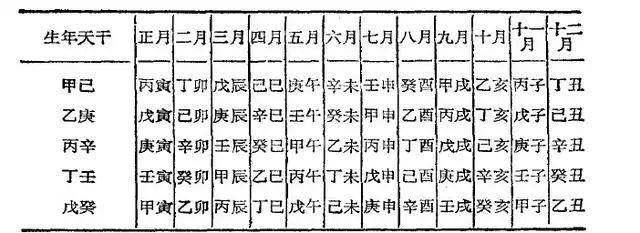 生年天干 正月 二月 三月 四月 五月 六月 七月 八月 九月 十月 十一月 十二月
甲已 丙寅 丁卯 戊辰 己巳 庚午 辛未 壬申 癸酉 甲戌 乙亥 丙子 丁丑
乙庚 戊寅 己卯 庚辰 辛巳 壬午 癸未 甲申 乙酉 丙戌 丁亥 戊子 己丑
丙辛 庚寅 辛卯 壬辰 癸巳 甲午 乙未 丙申 丁酉 戊戌 己亥 庚子 辛丑
丁壬 壬寅 癸卯 甲辰 乙巳 丙午 丁未 戊申 己酉 庚戌 辛亥 壬子 癸丑
戊癸 甲寅 乙卯 丙辰 丁巳 戊午 己未 庚申 辛酉 壬戌 癸亥 甲子 乙丑